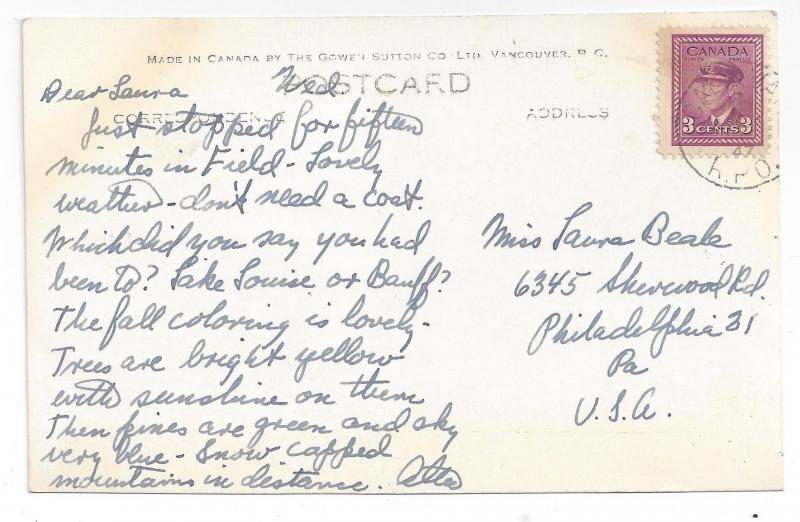 MADE IN CANADA BY THE GOWEN SUTTON CO. LTD. VANCOUVER, B.C.
POSTCARD
CORRESPONDENCE
ADDRESS
Wed
Dear Laura
Just stopped for fifteen
minutes in Field - Lovely
weather - don't need a coat.
Which did you say you had
been to? Lake Louise or Banff?
The fall coloring is lovely -
Trees are bright yellow
with sunshine on them
Then pines are green and sky
very blue - Snow capped
mountains in distance.
CANADA
POSTES POSTAGE
3 CENTS 3
47
R.P.O.
Miss Laura Beale
6345 Sherwood Rd.
Philadelphia 31
Pa
U.S.A.